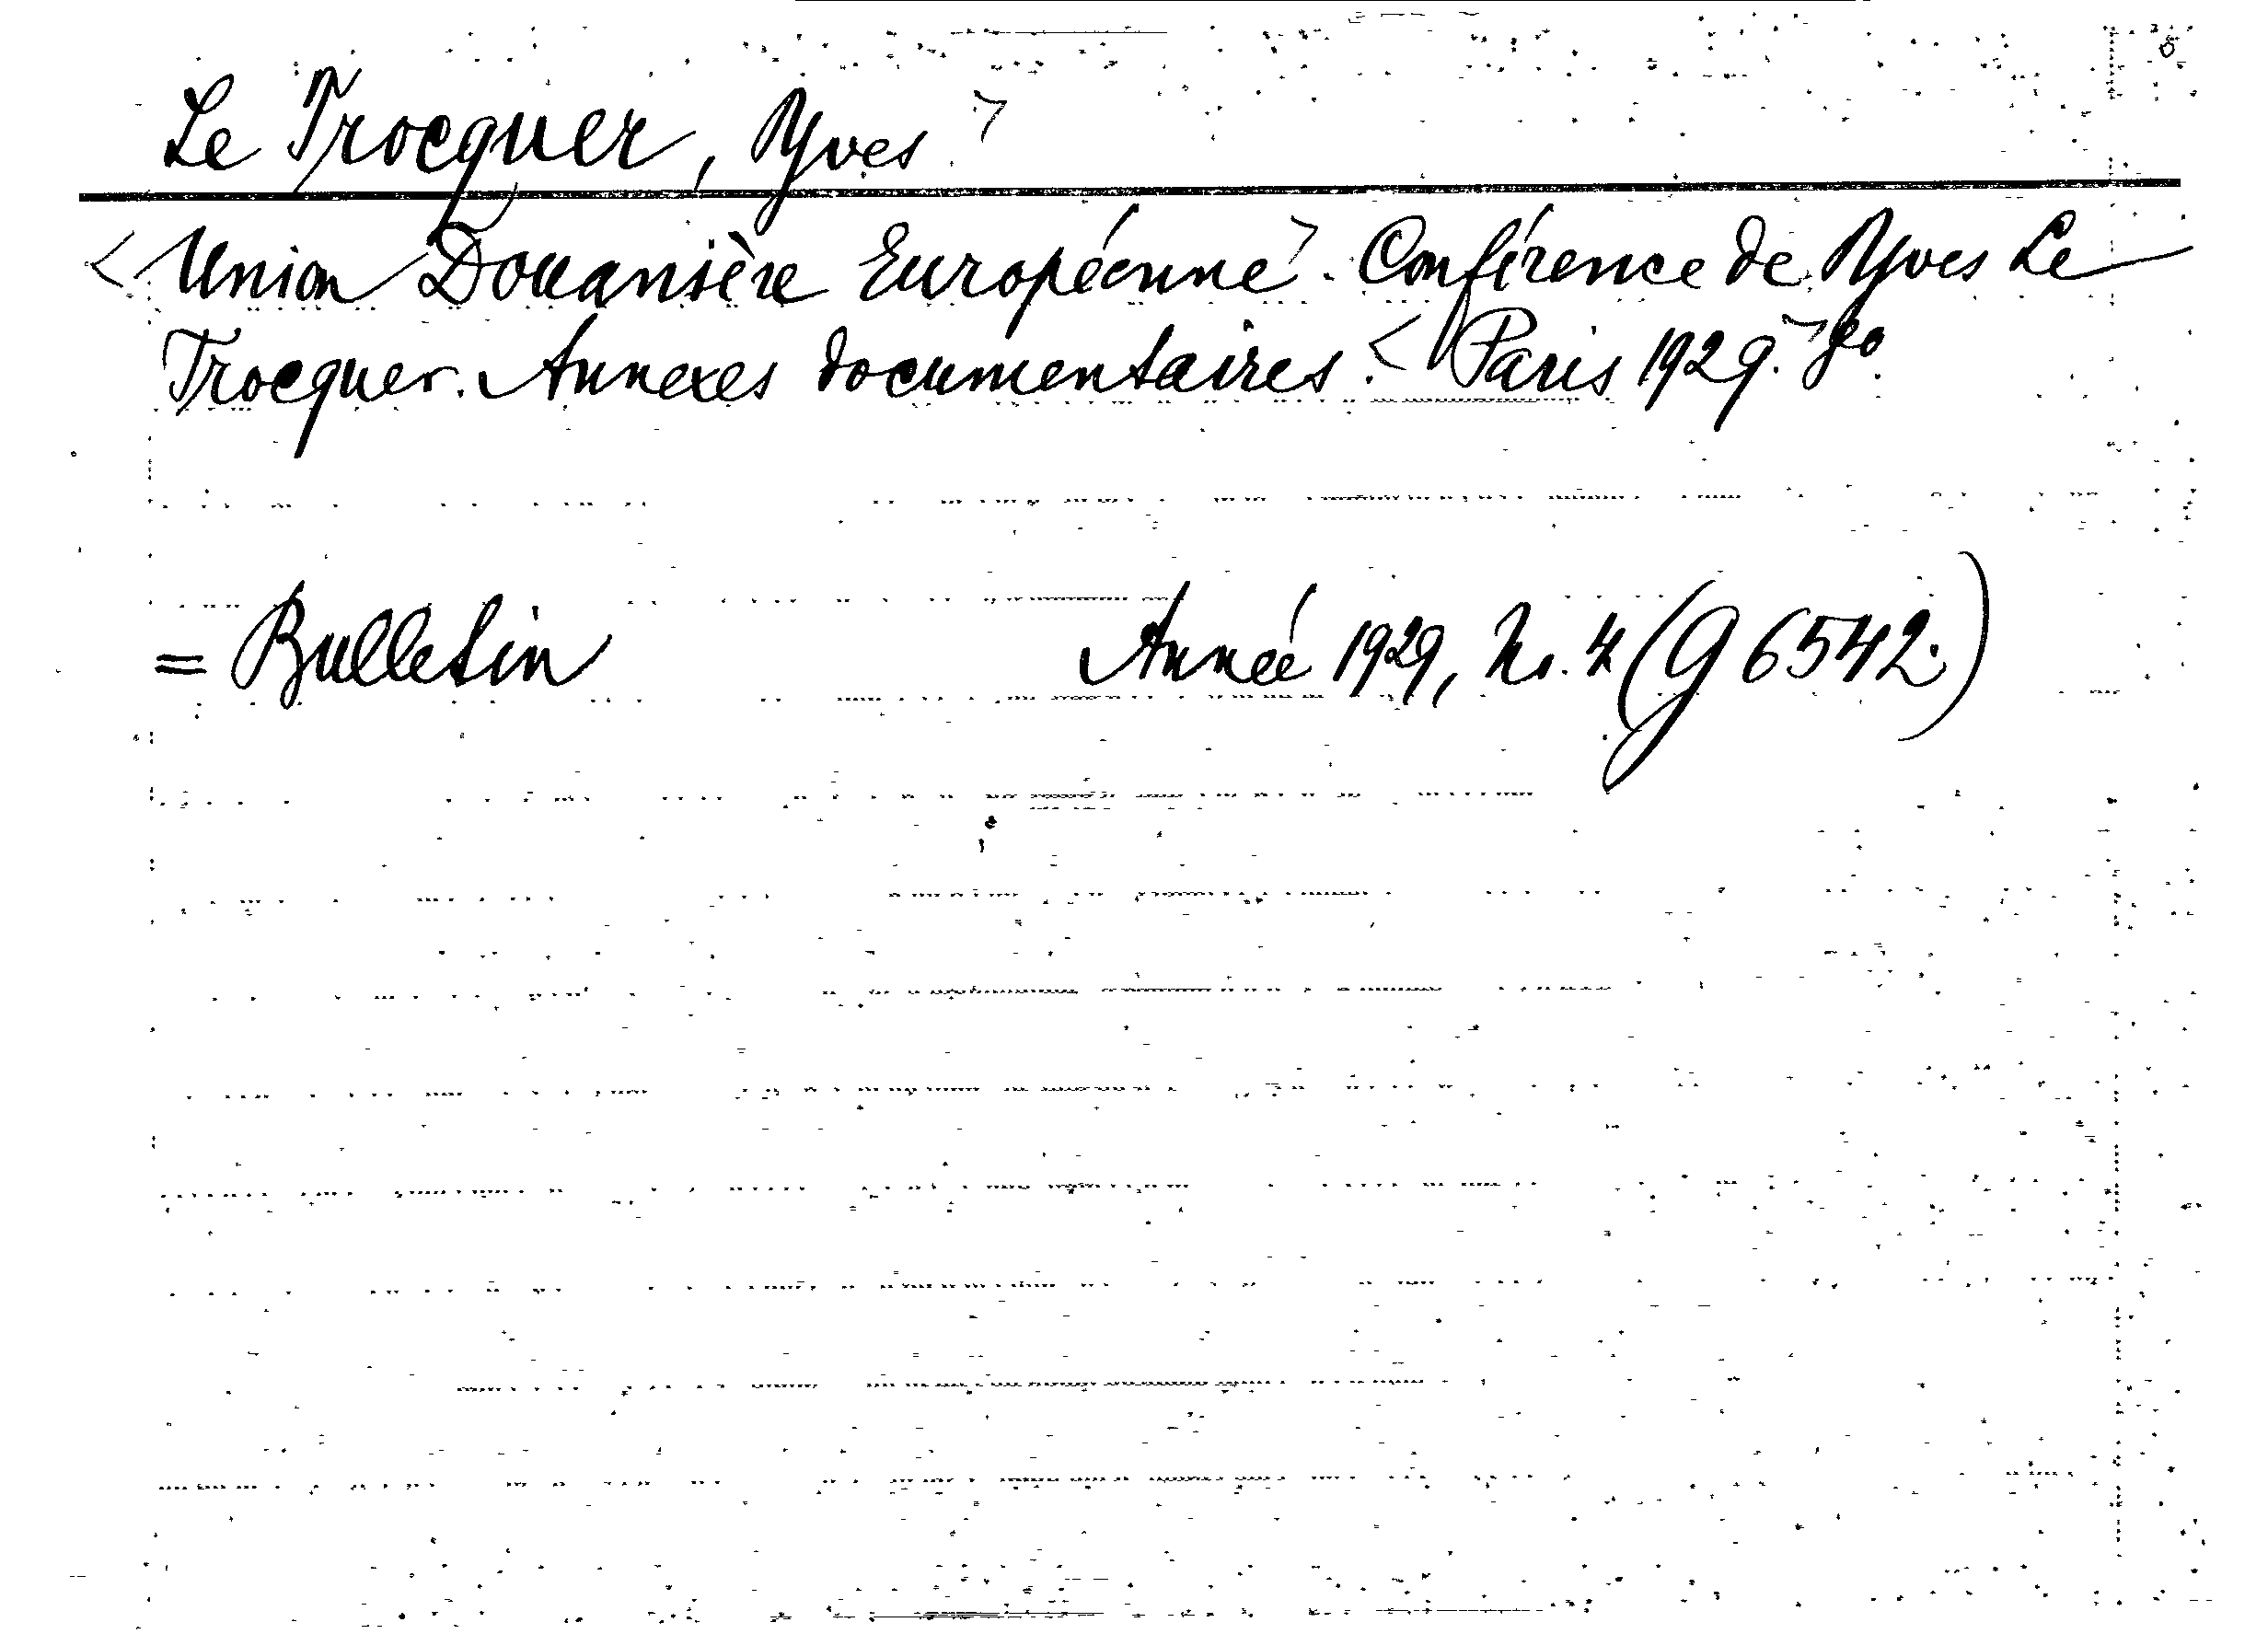 Le Trocquer, Yves >
< Union Douanière Européenne > . Conférence de Yves Le
Trocquer. Annexes documentaires. < Paris 1929. > 8o
= Bulletin Année 1929, No. 4 (G 6542.)